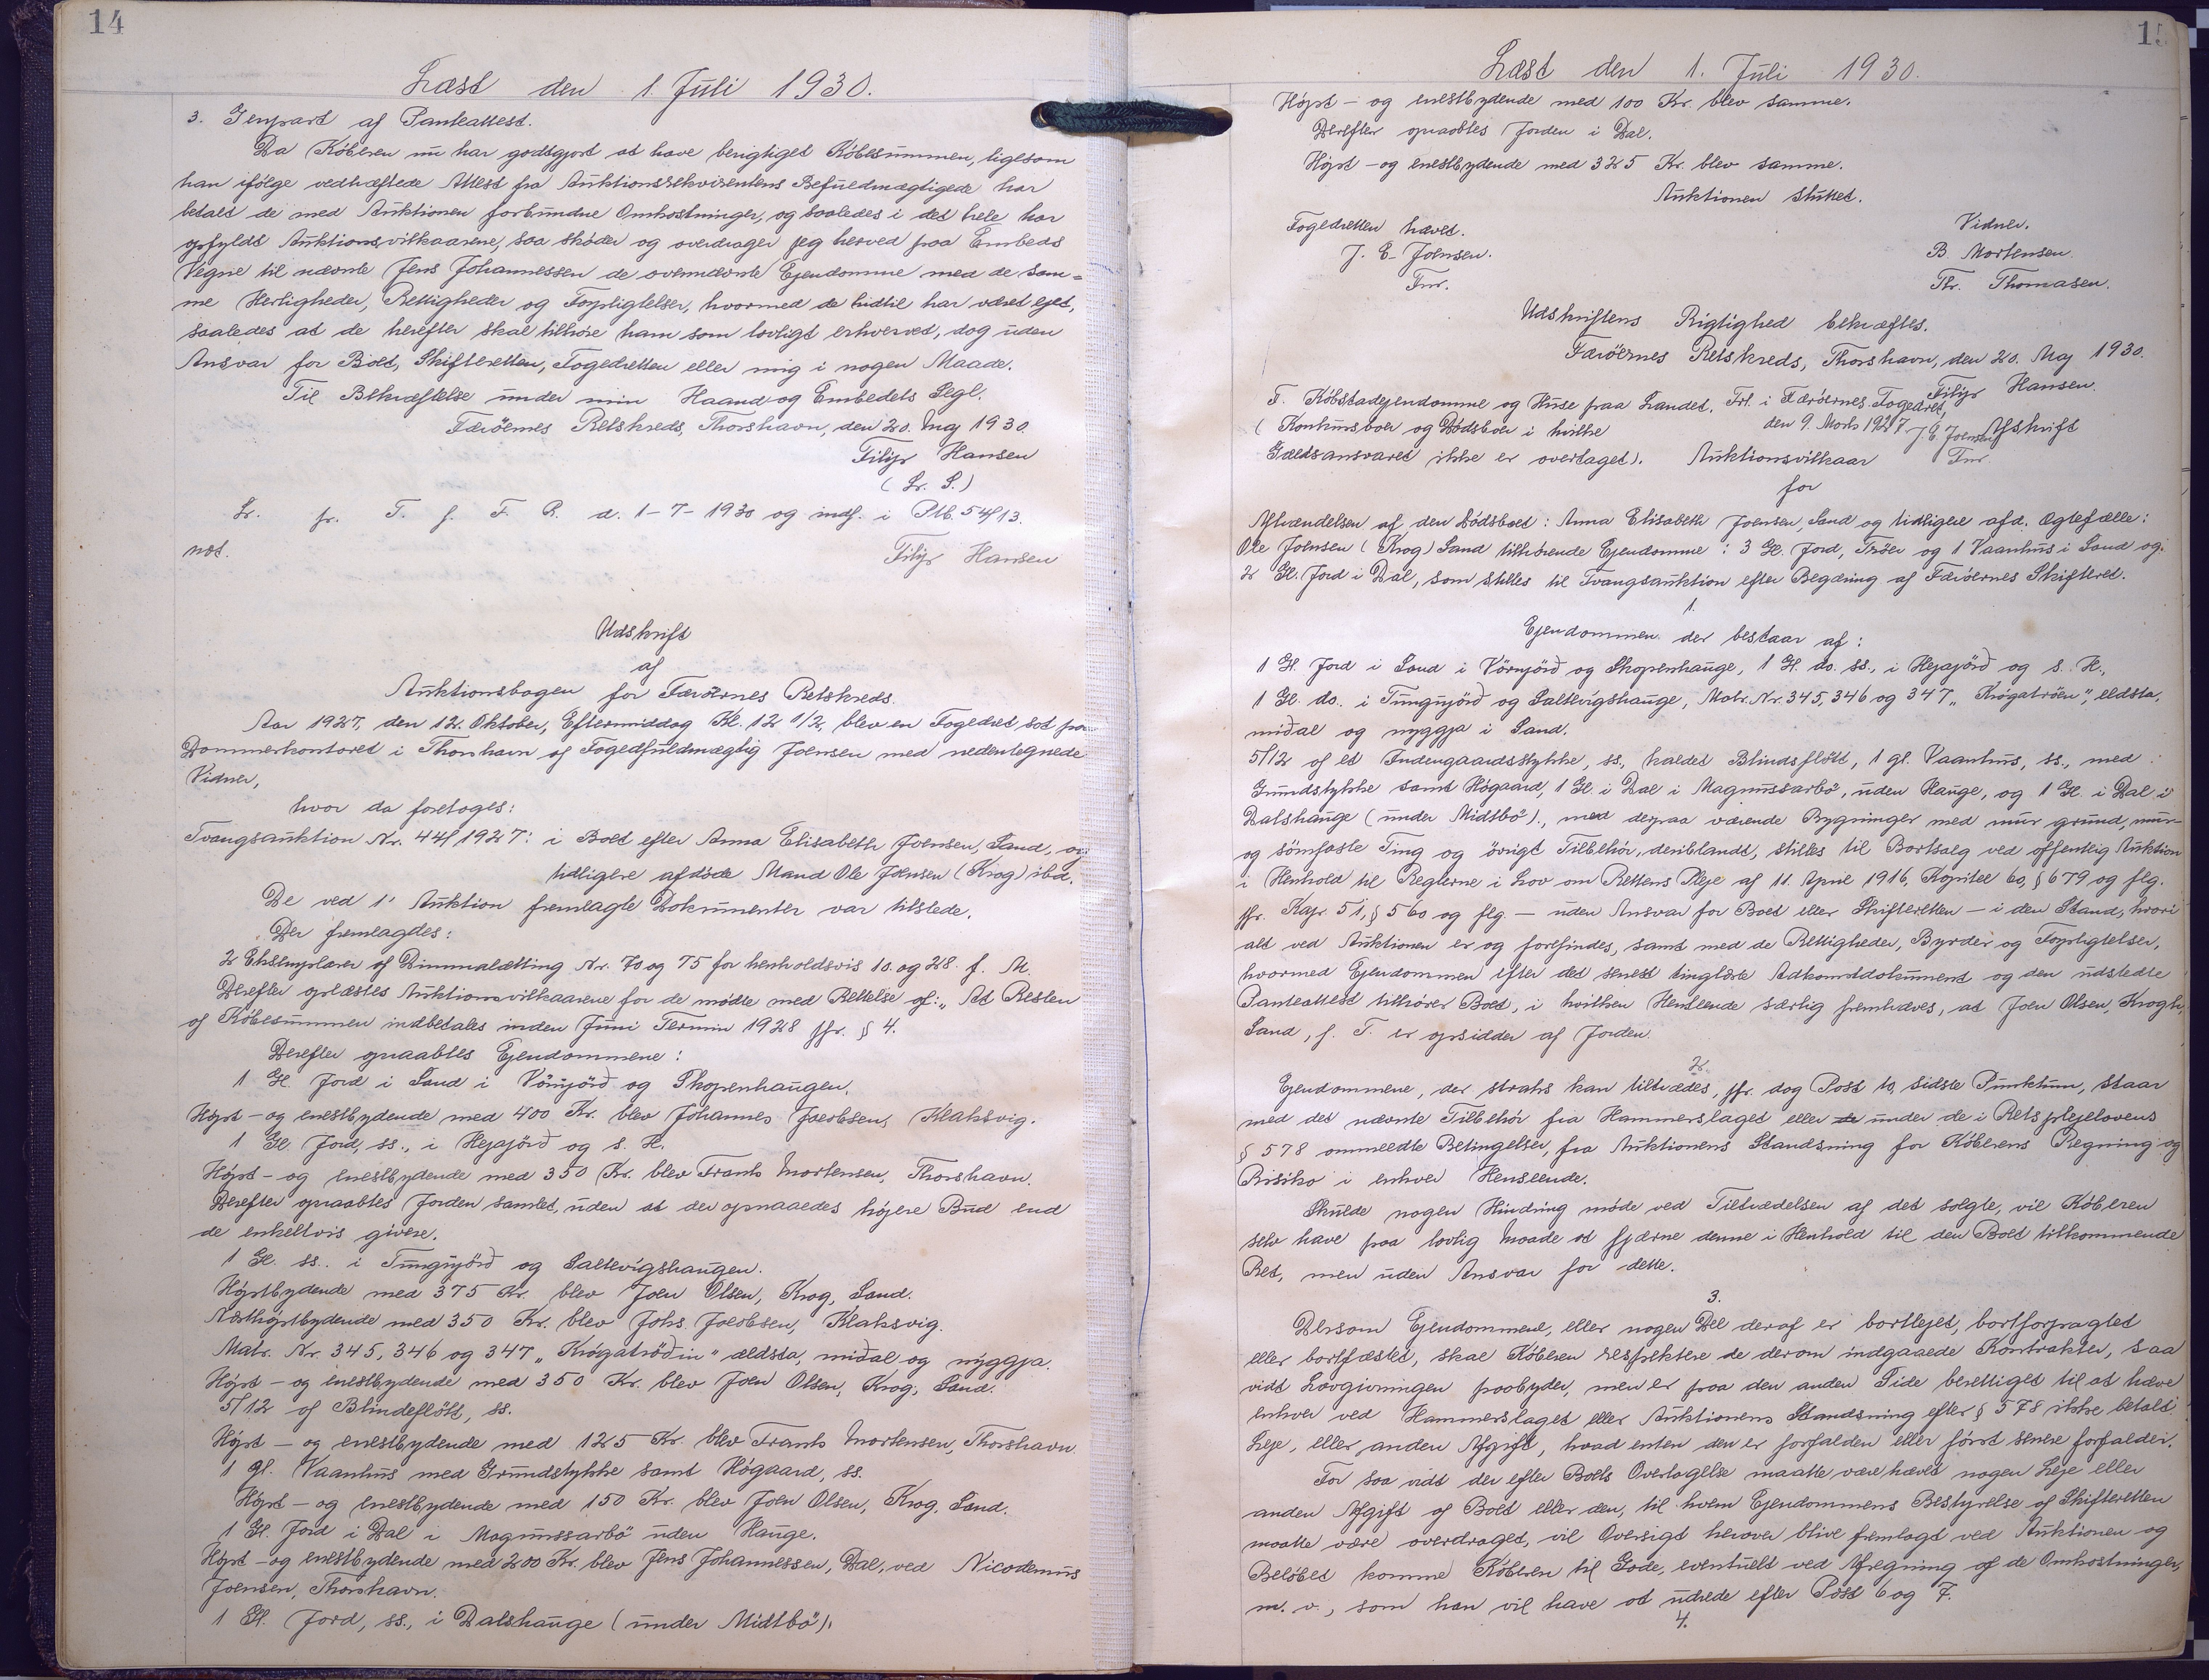 14
Læst den 1. Juli 1930.
3. Genpart af Panteattest.
Da Køberen nu har godtgjort at have berigtiget Købesummen, ligesom
han ifølge vedhæftede Attest fra Auktionsrekvirentens Befuldmægtigede har
betalt de med Auktionen forbundne Omkostninger, og saaledes i det hele har
opfyldt Auktionsvilkaarene, saa skøder og overdrager jeg herved paa Embeds
Vegne til nævnte Jens Johannessen de ovennævnte Ejendomme med de sam=
me Herligheder, Rettigheder og Forpligtelser, hvormed de hidtil har været ejet,
saaledes at de herefter skal tilhøre ham som lovligt erhvervet, dog uden
Ansvar for Boet, Skifteretten, Fogedretten eller mig i nogen Maade.
Til Bekræftelse under min Haand og Embedets Segl.
Færöernes Retskreds, Thorshavn, den 20. Maj 1930.
Filip Hansen
(L. S.)
L. fr. T. f. F. R. d. 1-7-1930 og indf. i Ptb. 54/13.
not.
Filip Hansen
Udskrift
af
Auktionsbogen for Færöernes Retskreds.
Aar 1927, den 12. Oktober, Eftermiddag Kl. 12 1/2, blev en Fogedret sat paa
Dommerkontoret i Thorshavn af Fogedfuldmægtig Joensen med nedentegnede
Vidner,
hvor da foretoges:
Tvangsauktion Nr. 44/1927: i Boet efter Anna Elisabeth Joensen, Sand, og
tidligere afdöde Mand Ole Joensen (Krog) ibd.
De ved 1' Auktion fremlagte Dokumenter var tilstede.
Der fremlagdes:
2 Eksemplarer af Dimmalætting Nr. 70 og 75 for henholdsvis 10. og 28. f. M.
Derefter oplæstes Auktionsvilkaarene for de mødte med Rettelse af: „At Resten
af Købesummen indbetales inden Juni Termin 1928 jfr. § 4.
Derefter opraabtes Ejendommene:
1 Gl. Jord i Sand i Vörnjörð og Skopenhaugen.
Højst- og enestbydende med 400 Kr. blev Johannes Jacobsen, Klaksvig.
1 Gl. Jord, ss., i Hejajörð og s. H.
Højst- og enestbydende med 350 Kr. blev Frants Mortensen, Thorshavn.
Derefter opraabtes Jorden samlet, uden at der opnaaedes højere Bud end
de enkeltvis givere.
1 Gl. ss. i Tungujörð og Saltvigshaugen.
Højstbydende med 375 Kr. blev Joen Olsen, Krog, Sand.
Næsthøjstbydende med 350 Kr. blev Johs. Jacobsen, Klaksvig.
Matr. Nr. 345, 346 og 347 „Krógatröðin" ældsta, miðal og nýggja.
Højst- og enestbydende med 350 Kr. blev Joen Olsen, Krog, Sand.
5/12 af Blindeflött, ss.
Højst- og enestbydende med 125 Kr. blev Frants Mortensen, Thorshavn
1 gl. Vaanhus med Grundstykke samt Høgaard, ss.
Højst- og enestbydende med 150 Kr. blev Joen Olsen, Krog, Sand.
1 Gl. Jord i Dal i Magnussarbö uden Hauge.
Højst- og enestbydende med 200 Kr. blev Jens Johannessen, Dal, ved Nicodemus
Joensen, Thorshavn.
1 Gl. Jord, ss., i Dalshauge (under Midtbö).
Læst den 1. Juli 1930.
Højst- og enestbydende med 100 Kr. blev samme.
Derefter opraabtes Jorden i Dal.
Højst- og enestbydende med 325 Kr. blev samme.
Auktionen sluttet.
Fogedretten hævet.
Vidner.
J. E. Joensen.
B. Mortensen.
Fm.
Th. Thomasen.
Udskriftens Rigtighed bekræftes.
Færöernes Retskreds, Thorshavn, den 20. Maj 1930.
Filip Hansen.
F. Købstadejendomme og Huse paa Landet. Frl. i Færöernes Fogedret,
(Konkursboer og Dödsboer i hvilke
den 9. Marts 1927 J. E. Joensen
Afskrift
Gældsansvaret ikke er overtaget). Auktionsvilkaar
Fm.
for
Afhændelsen af den Dödsboet: Anna Elisabeth Joensen, Sand og tidligere afd. Ægtefælle:
Ole Joensen (Krog) Sand tilhørende Ejendomme: 3 Gl. Jord, Tröer og 1 Vaanhus i Sand og
2 Gl. Jord i Dal, som stilles til Tvangsauktion efter Begæring af Færöernes Skifteret.
1.
Ejendommen der bestaar af:
1 Gl. Jord i Sand i Vörnjörð og Skopenhauge, 1 Gl. do. ss., i Hejajörð og s. H.,
1 Gl. do. i Tungujörð og Saltvigshauge, Matr. Nr. 345, 346 og 347 „Krógatröen", eldsta,
miðal og nyggja i Sand.
5/12 af et Indengaardsstykke, ss. kaldet Blindsflött, 1 gl. Vaanhus, ss., med
Grundstykke samt Høgaard, 1 Gl. i Dal i Magnussarbö, uden Hauge, og 1 Gl. i Dal i
Dalshauge (under Midtbö)., med derpaa værende Bygninger med mur grund, mur-
og sömfaste Ting og övrigt Tilbehör, deriblandt, stilles til Bortsalg ved offentlig Auktion
i Henhold til Reglerne i Lov om Rettens Pleje af 11. April 1916, Kapitel 60, § 679 og flg.
jfr. Kap. 51, § 560 og flg. - uden Ansvar for Boet eller Skifteretten - i den Stand, hvori
alt ved Auktionen er og forefindes, samt med de Rettigheder, Byrder og Forpligtelser,
hvormed Ejendommen efter det senest tinglæste Adkomstdokument og den udstedte
Panteattest tilhører Boet, i hvilken Henseende særlig fremhæves, at Joen Olsen, Krogh,
Sand, f. T. er opsidder af Jorden.
2.
Ejendommene, der straks kan tiltrædes, jfr. dog Post 10, sidste Punktum, staar
med det nævnte Tilbehör fra Hammerslaget eller under de i Retsplejelovens
§ 578 ommeldte Betingelser, fra Auktionens Standsning for Köberens Regning og
Risiko i enhver Henseende.
Skulde nogen Hindring møde ved Tiltrædelsen af det solgte, vil Köberen
selv have paa lovlig Maade at fjærne denne i Henhold til den Boet tilkommende
Ret, men uden Ansvar for dette.
3.
Dersom Ejendommene, eller nogen Del deraf er bortlejet, bortforpagtet
eller bortfæstet, skal Köberen respektere de derom indgaaede Kontrakter, saa
vidt Lovgivningen paabyder, men er paa den anden Side berettiget til at hæve
enhver ved Hammerslaget eller Auktionens Standsning efter § 578 ikke betalt
Leje, eller anden Afgift, hvad enten den er forfalden eller først senere forfalder.
For saa vidt der efter Boets Overtagelse maatte være hævet nogen Leje eller
anden Afgift af Boet eller den, til hvem Ejendommens Bestyrelse af Skifteretten
maatte være overdraget, vil Oversigt herover blive fremlagt ved Auktionen og
Beløbet komme Köberen til Gode, eventuelt ved Afregning af de Omkostninger,
m. v., som han vil have at udrede efter Post 6 og 7.
4.